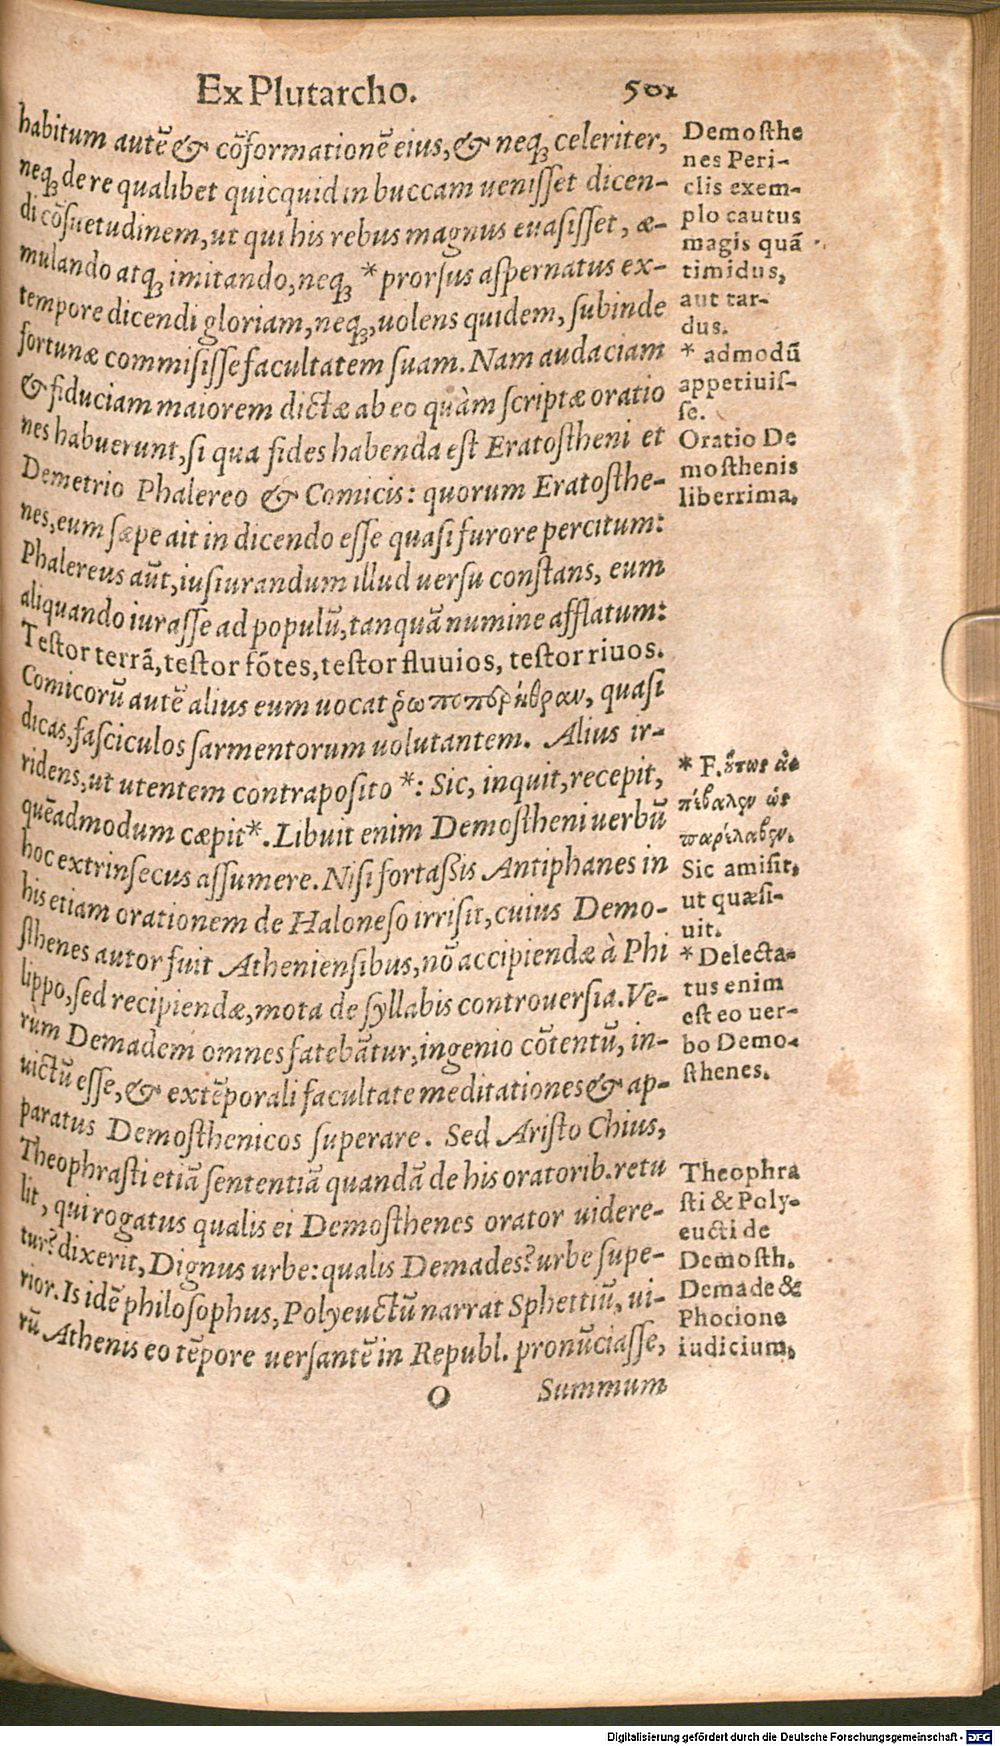 Ex Plutarcho. 501
habitum autē & cōformationē eius, & neq; celeriter,
neq; de re qualibet quicquid in buccam uenisset dicen-
di cōsuetudinem, ut qui his rebus magnus euasisset, æ-
mulando atq; imitando, neq; * prorsus aspernatus ex-
tempore dicendi gloriam, neq;, uolens quidem, subinde
fortunæ commisisse facultatem suam. Nam audaciam
& fiduciam maiorem dictæ ab eo quàm scriptæ oratio
nes habuerunt, si qua fides habenda est Eratostheni et
Demetrio Phalereo & Comicis: quorum Eratosthe-
nes, eum sæpe ait in dicendo esse quasi furore percitum:
Phalereus aūt, iusiurandum illud uersu constans, eum
aliquando iurasse ad populū, tanquā numine afflatum:
Testor terrā, testor fōtes, testor fluuios, testor riuos.
Comicorū autē alius eum uocat ῥωποπερπερήθραν, quasi
dicas, fasciculos sarmentorum uolutantem. Alius ir-
ridens, ut utentem contraposito *: Sic, inquit, recepit,
quēadmodum cœpit*. Libuit enim Demostheni uerbū
hoc extrinsecus assumere. Nisi fortassis Antiphanes in
his etiam orationem de Haloneso irrisit, cuius Demo-
sthenes autor fuit Atheniensibus, nō accipiendæ à Phi
lippo, sed recipiendæ, mota de syllabis controuersia. Ve-
rùm Demadem omnes fatebātur, ingenio cōtentū, in-
uictū esse, & extēporali facultate meditationes & ap-
paratus Demosthenicos superare. Sed Aristo Chius,
Theophrasti etiā sententiā quandā de his oratorib. retu
lit, qui rogatus qualis ei Demosthenes orator uidere-
tur? dixerit, Dignus urbe: qualis Demades? urbe supe-
rior. Is idē philosophus, Polyeuctū narrat Sphettiū, ui-
rū Athenis eo tēpore uersantē in Republ. pronūciasse,
O Summum
Demosthe
nes Peri-
clis exem-
plo cautus
magis quā
timidus,
aut tar-
dus.
* admodū
appetiuis-
se.
Oratio De
mosthenis
liberrima.
* F. οὕτως ἀ-
πέβαλεν ὡς
παρέλαβεν.
Sic amisit,
ut quæsi-
uit.
* Delecta-
tus enim
est eo uer-
bo Demo-
sthenes.
Theophra
sti & Poly-
eucti de
Demosth.
Demade &
Phocione
iudicium.
Digitalisierung gefördert durch die Deutsche Forschungsgemeinschaft - DFG